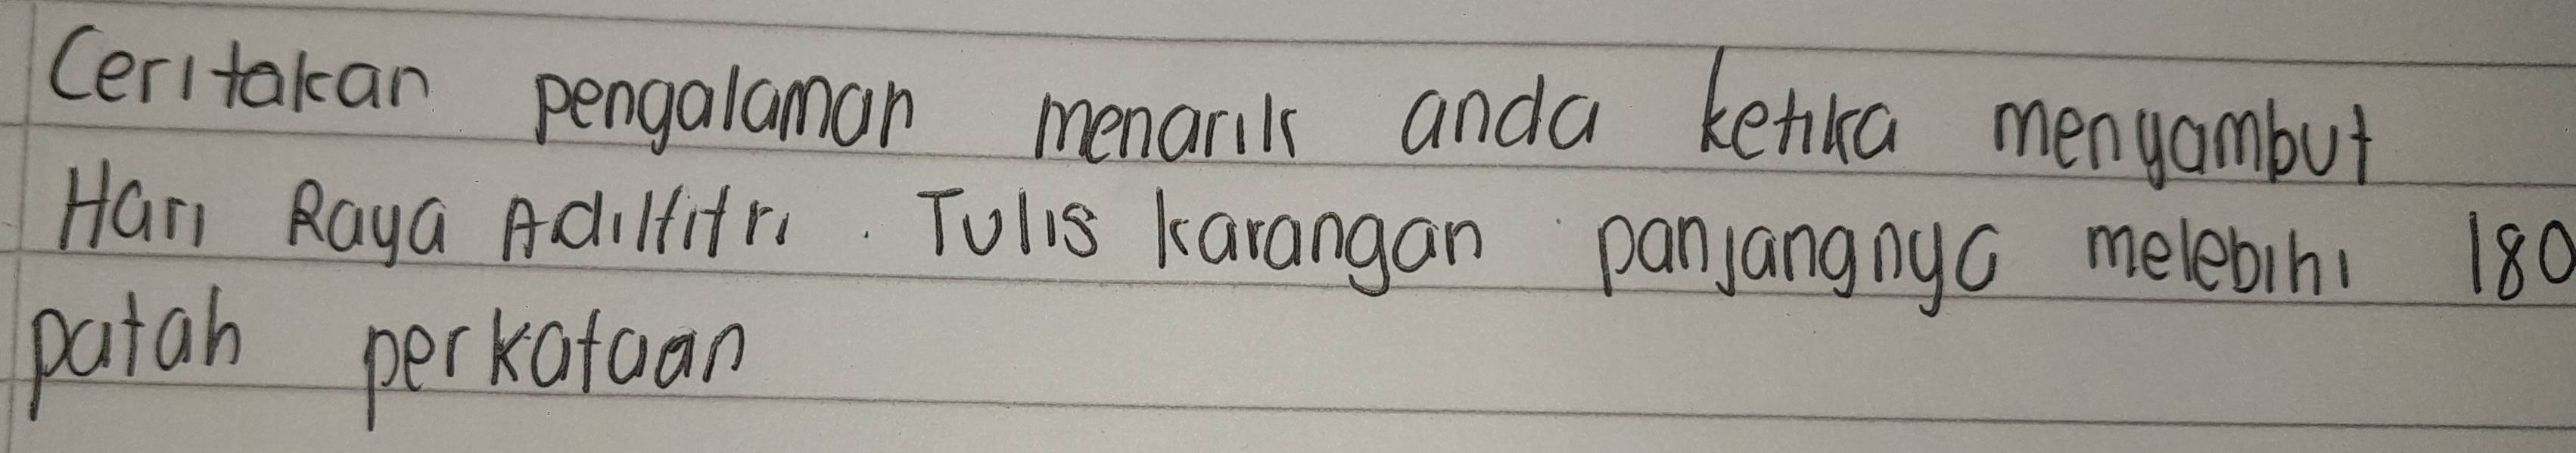 Ceritakan pengalaman menarik anda ketika menyambut
Hari Raya Adilfitri. Tulis karangan panjangnya melebihi 180
patah perkataan